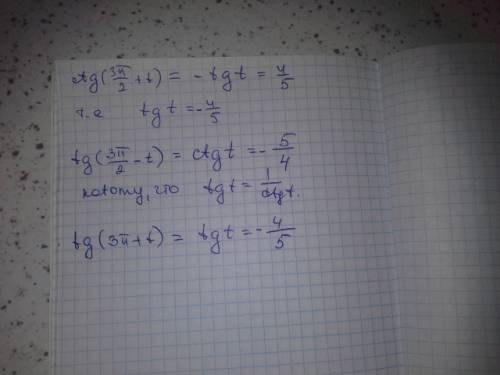 ctg(3π/2 + t) = - tg t = 4/5
т.е tg t = - 4/5
tg(3π/2 - t) = ctg t = - 5/4
потому, что tg t = 1/ctg t.
tg(3π + t) = tg t = - 4/5